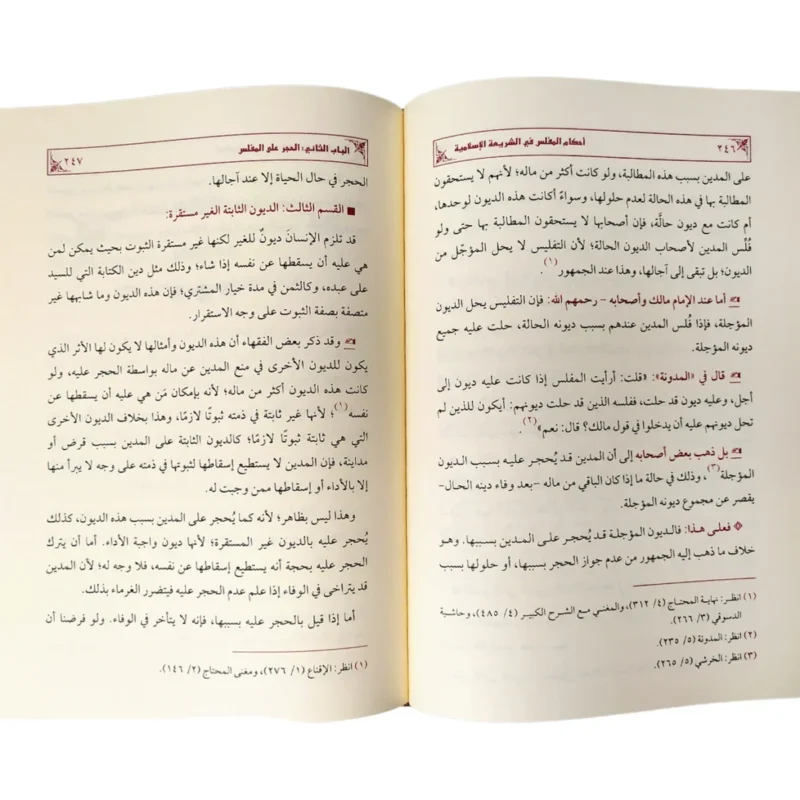 ٢٤٦
أحكام المفلس في الشريعة الإسلامية
على المدين بسبب هذه المطالبة، ولو كانت أكثر من ماله؛ لأنهم لا يستحقون
المطالبة بها في هذه الحالة لعدم حلولها، وسواءً أكانت هذه الديون لوحدها،
أم كانت مع ديون حالَّة، فإن أصحابها لا يستحقون المطالبة بها حتى ولو
فُلِّس المدين لأصحاب الديون الحالة؛ لأن التفليس لا يحل المؤجّل من
الديون؛ بل تبقى إلى آجالها، وهذا عند الجمهور(١).
أما عند الإمام مالك وأصحابه - رحمهم الله: فإن التفليس يحل الديون
المؤجلة، فإذا فُلس المدين عندهم بسبب ديونه الحالة، حلت عليه جميع
ديونه المؤجلة.
قال في «المدونة»: «قلت: أرأيت المفلس إذا كانت عليه ديون إلى
أجل، وعليه ديون قد حلت، ففلسه الذين قد حلت ديونهم: أيكون للذين لم
تحل ديونهم عليه أن يدخلوا في قول مالك؟ قال: نعم»(٢).
بل ذهب بعض أصحابه إلى أن المدين قد يُحجر عليه بسبب الديون
المؤجلة(٣)، وذلك في حالة ما إذا كان الباقي من ماله -بعد وفاء دينه الحال-
يقصر عن مجموع ديونه المؤجلة.
فعلى هذا: فالديون المؤجلة قد يُحجر على المدين بسببها. وهو
خلاف ما ذهب إليه الجمهور من عدم جواز الحجر بسببها، أو حلولها بسبب
(١) انظر: نهاية المحتاج (٤/ ٣١٢)، والمغني مع الشرح الكبير (٤/ ٤٨٥)، وحاشية
الدسوقي (٣/ ٢٦٦).
(٢) انظر: المدونة (٥/ ٢٣٥).
(٣) انظر: الخرشي (٥/ ٢٦٥).
الباب الثاني: الحجر على المفلس
٢٤٧
الحجر في حال الحياة إلا عند آجالها.
القسم الثالث: الديون الثابتة الغير مستقرة:
قد تلزم الإنسانَ ديونٌ للغير لكنها غير مستقرة الثبوت بحيث يمكن لمن
هي عليه أن يسقطها عن نفسه إذا شاء؛ وذلك مثل دين الكتابة التي للسيد
على عبده، وكالثمن في مدة خيار المشتري؛ فإن هذه الديون وما شابهها غير
متصفة بصفة الثبوت على وجه الاستقرار.
وقد ذكر بعض الفقهاء أن هذه الديون وأمثالها لا يكون لها الأثر الذي
يكون للديون الأخرى في منع المدين عن ماله بواسطة الحجر عليه، ولو
كانت هذه الديون أكثر من ماله؛ لأنه بإمكان مَن هي عليه أن يسقطها عن
نفسه(١)؛ لأنها غير ثابتة في ذمته ثبوتًا لازمًا، وهذا بخلاف الديون الأخرى
التي هي ثابتة ثبوتًا لازمًا؛ كالديون الثابتة على المدين بسبب قرض أو
مداينة، فإن المدين لا يستطيع إسقاطها لثبوتها في ذمته على وجه لا يبرأ منها
إلا بالأداء أو إسقاطها ممن وجبت له.
وهذا ليس بظاهر؛ لأنه كما يُحجر على المدين بسبب هذه الديون، كذلك
يُحجر عليه بالديون غير المستقرة؛ لأنها ديون واجبة الأداء. أما أن يترك
الحجر عليه بحجة أنه يستطيع إسقاطها عن نفسه، فلا وجه له؛ لأن المدين
قد يتراخى في الوفاء إذا علم عدم الحجر عليه فيتضرر الغرماء بذلك.
أما إذا قيل بالحجر عليه بسببها، فإنه لا يتأخر في الوفاء. ولو فرضنا أن
(١) انظر: الإقناع (١/ ٢٧٦)، ومغنى المحتاج (٢/ ١٤٦).